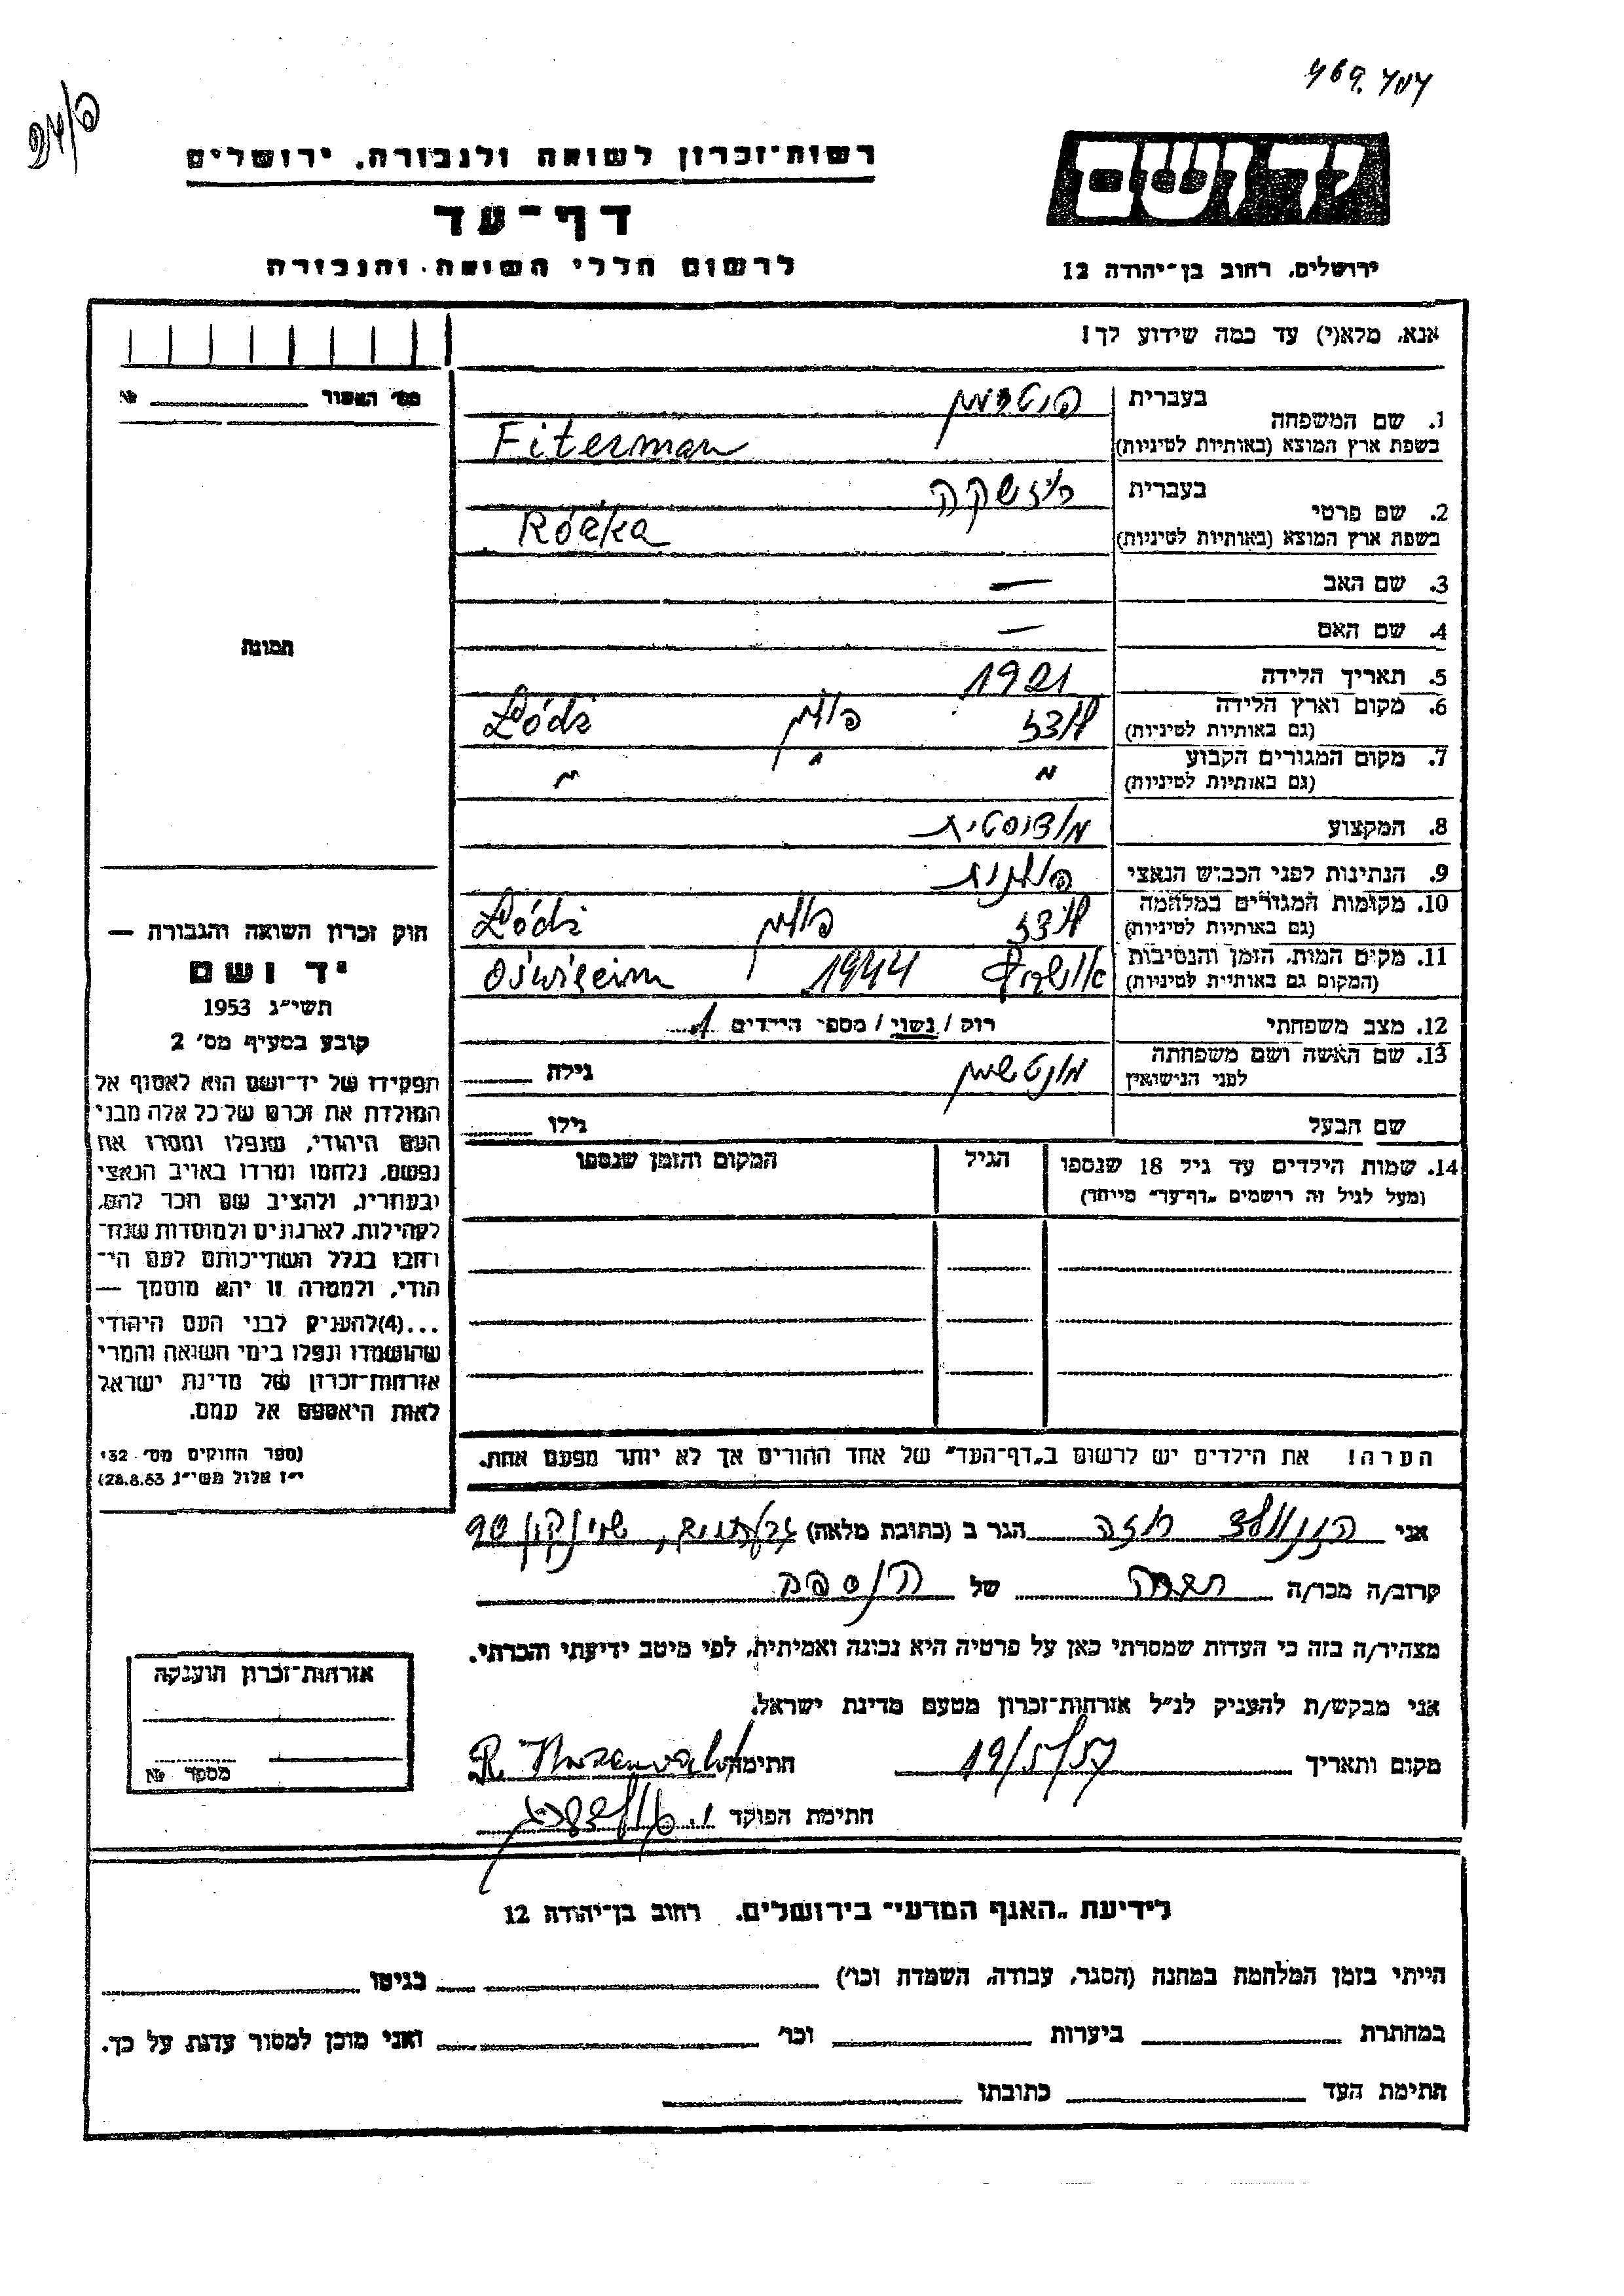 469.707
רשות־זכרון לשואה ולגבורה, ירושלים
יד ושם
דף־עד
לרשום חללי השואה והגבורה
ירושלים, רחוב בן־יהודה 12
אנא, מלא(י) עד כמה שידוע לך!
מס' האשור № 
1. שם המשפחה
בעברית פיטרמן
בשפת ארץ המוצא (באותיות לטיניות) Fiterman
2. שם פרטי
בעברית רוזשקה
בשפת ארץ המוצא (באותיות לטיניות) Różka
3. שם האב —
4. שם האם —
5. תאריך הלידה 1921
6. מקום וארץ הלידה (גם באותיות לטיניות) לודז פולין Łódź
7. מקום המגורים הקבוע (גם באותיות לטיניות) " " "
8. המקצוע מודיסטית
9. הנתינות לפני הכבוש הנאצי פולנית
10. מקומות המגורים במלחמה (גם באותיות לטיניות) לודז פולין Łódź
11. מקום המות, הזמן והנסיבות (המקום גם באותיות לטיניות) אושויץ 1944 Oświęcim
12. מצב משפחתי רווק / נשוי / מספר הילדים 1
13. שם האשה ושם משפחתה לפני הנישואין גילה
שם הבעל גילו
14. שמות הילדים עד גיל 18 שנספו הגיל המקום והזמן שנספו
(מעל לגיל זה רושמים „דף־עד" מייחד)
הערה! את הילדים יש לרשום ב„דף־העד" של אחד ההורים אך לא יותר מפעם אחת.
תמונה
חוק זכרון השואה והגבורה —
יד ושם
תשי״ג 1953
קובע בסעיף מס' 2
תפקידו של יד־ושם הוא לאסוף אל
המולדת את זכרם של כל אלה מבני
העם היהודי, שנפלו ומסרו את
נפשם, נלחמו ומרדו באויב הנאצי
ובעוזריו, ולהציב שם וזכר להם,
לקהילות, לארגונים ולמוסדות שנח־
רבו בגלל השתייכותם לעם הי־
הודי, ולמטרה זו יהא מוסמך —
...(4)להעניק לבני העם היהודי
שהושמדו ונפלו בימי השואה והמרי
אזרחות־זכרון של מדינת ישראל
לאות היאספם אל עמם.
(ספר החוקים מס' 132
י״ז אלול תשי״ג 28.8.53)
אני רוזה הגר ב (כתובת מלאה) גבעתיים, שינקין 90
קרוב/ה מכר/ה חברה של הנספה
מצהיר/ה בזה כי העדות שמסרתי כאן על פרטיה היא נכונה ואמיתית, לפי מיטב ידיעתי והכרתי.
אני מבקש/ת להעניק לנ״ל אזרחות־זכרון מטעם מדינת ישראל.
מקום ותאריך 19/5/57 חתימה R.
חתימת הפוקד
אזרחות־זכרון הוענקה
מספר №
לידיעת „האגף המדעי" בירושלים, רחוב בן־יהודה 12
הייתי בזמן המלחמה במחנה (הסגר, עבודה, השמדה וכו') בגיטו
במחתרת ביערות וכו' ואני מוכן למסור עדות על כך.
חתימת העד כתובתו